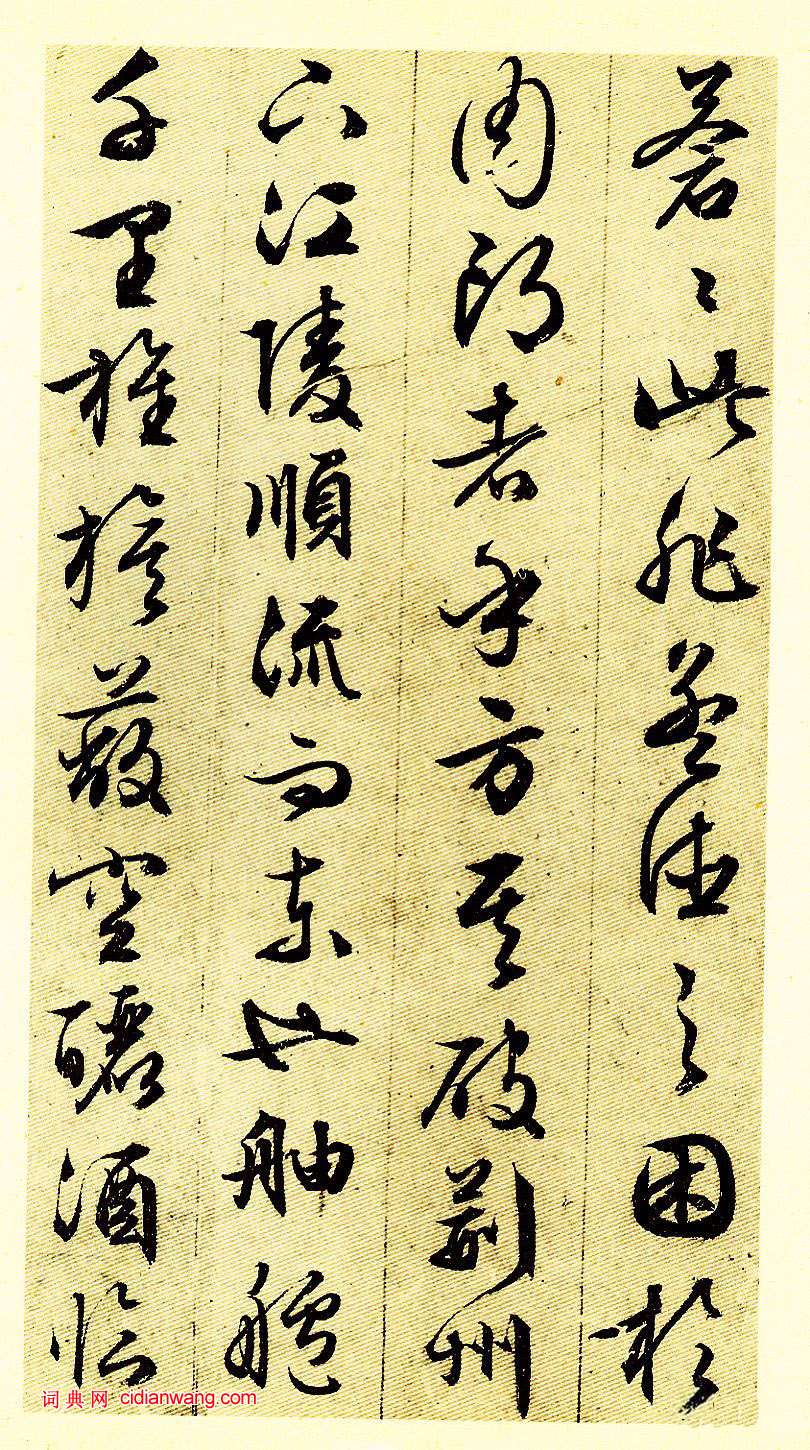 蒼〻此非孟德之困於
周郎者乎方其破荊州
下江陵順流而東也舳艫
千里旌旗蔽空釃酒臨
词典网 cidianwang.com